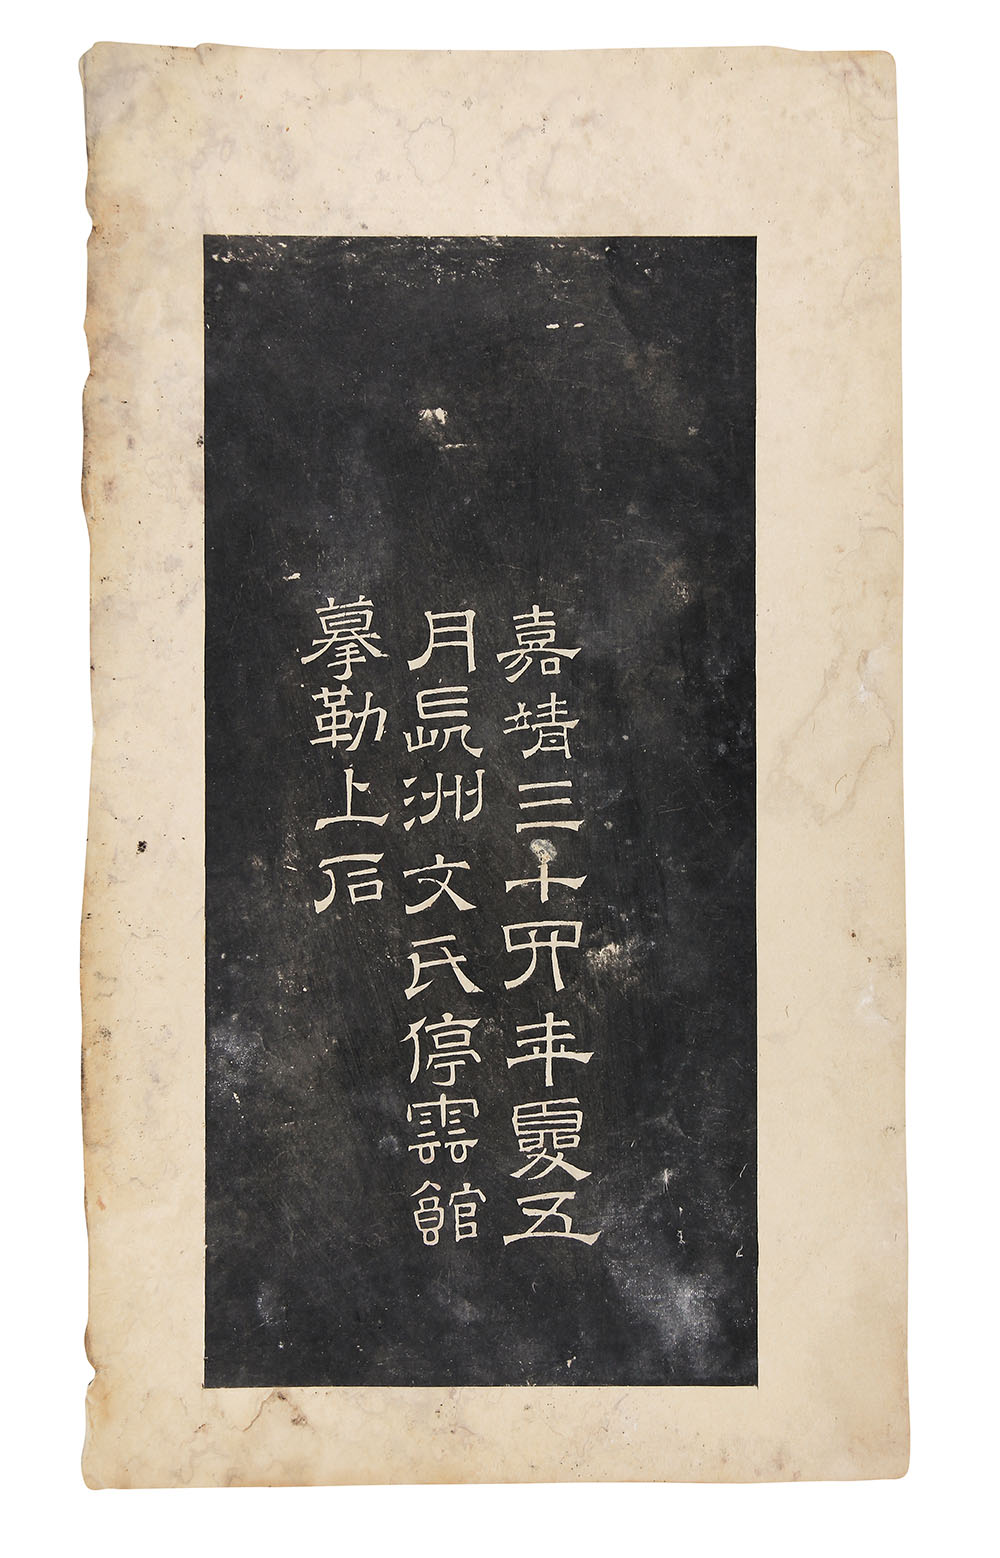 嘉靖三十四年夏五
月長洲文氏停雲館
摹勒上石